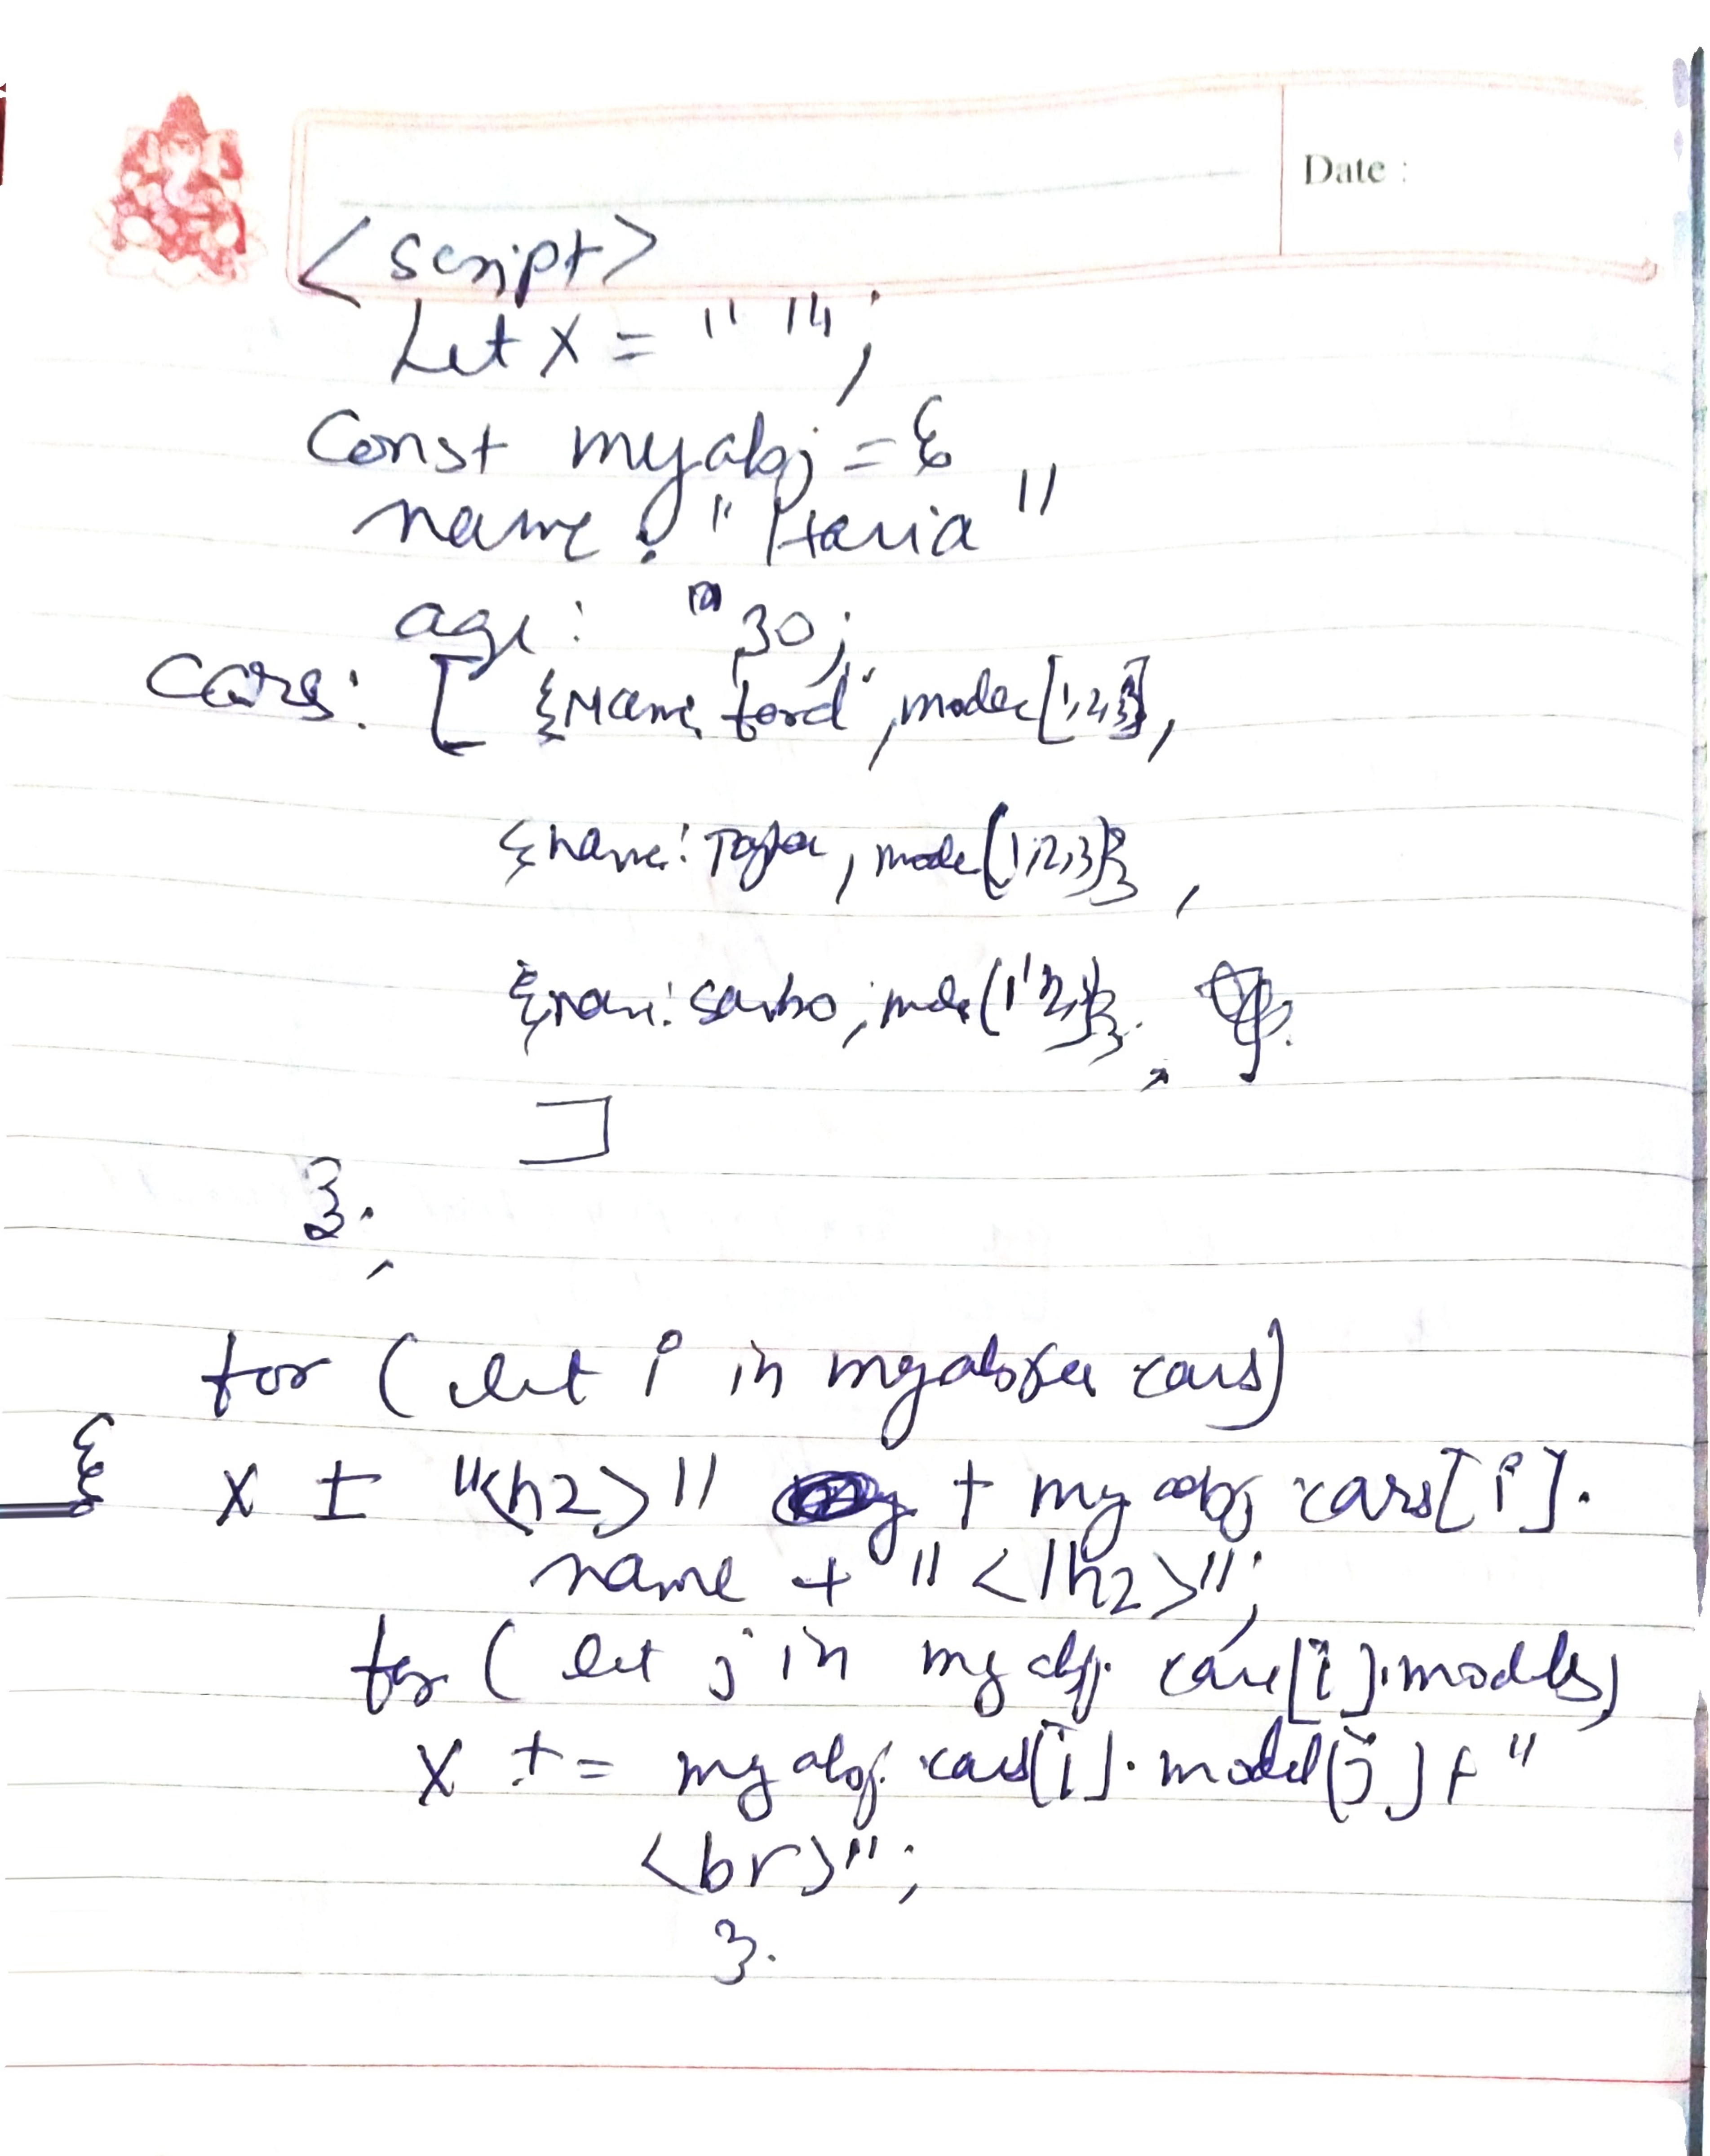 Date :
<script>
Let x = " ";
Const myobj = {
name : " Haria "
age : 30;
Cars: [ {Name ford", model [1,2,3],
{name: , mode (1,2,3)},
: , (1 2
]
};
for (let i in cars)
{ x ± "<h2>" + myobj cars[i].
name + "</h2>";
for ( let j in my obj. cars[i].models)
x += my obj. cars[i].model[j] + "
<br>";
}.